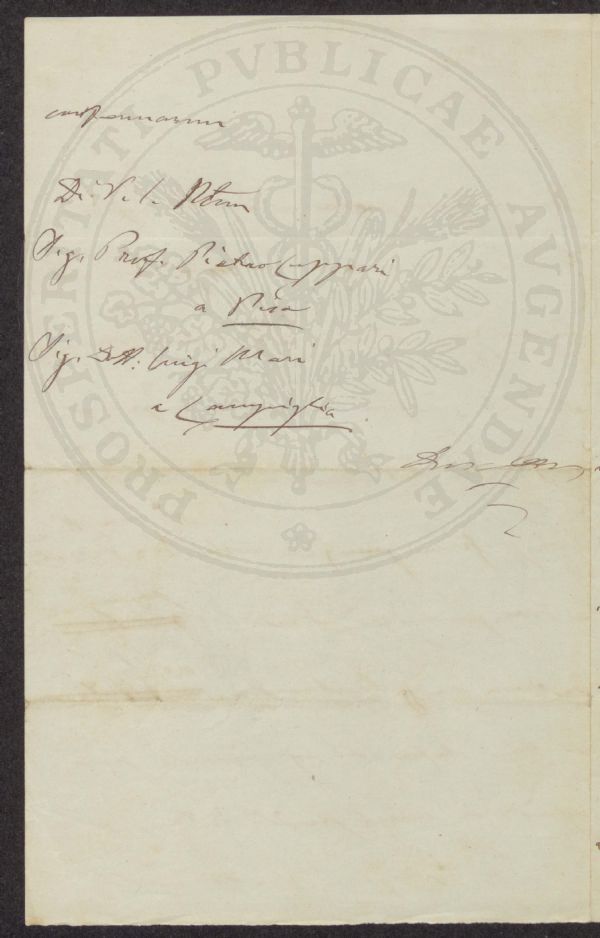 PROSPERITATI PVBLICAE AVGENDAE
confermarmi
Di V. S.
Sig. Prof. Pietro Cuppari
a Pisa
Sig. Dott. Luigi Mari
a Campiglia